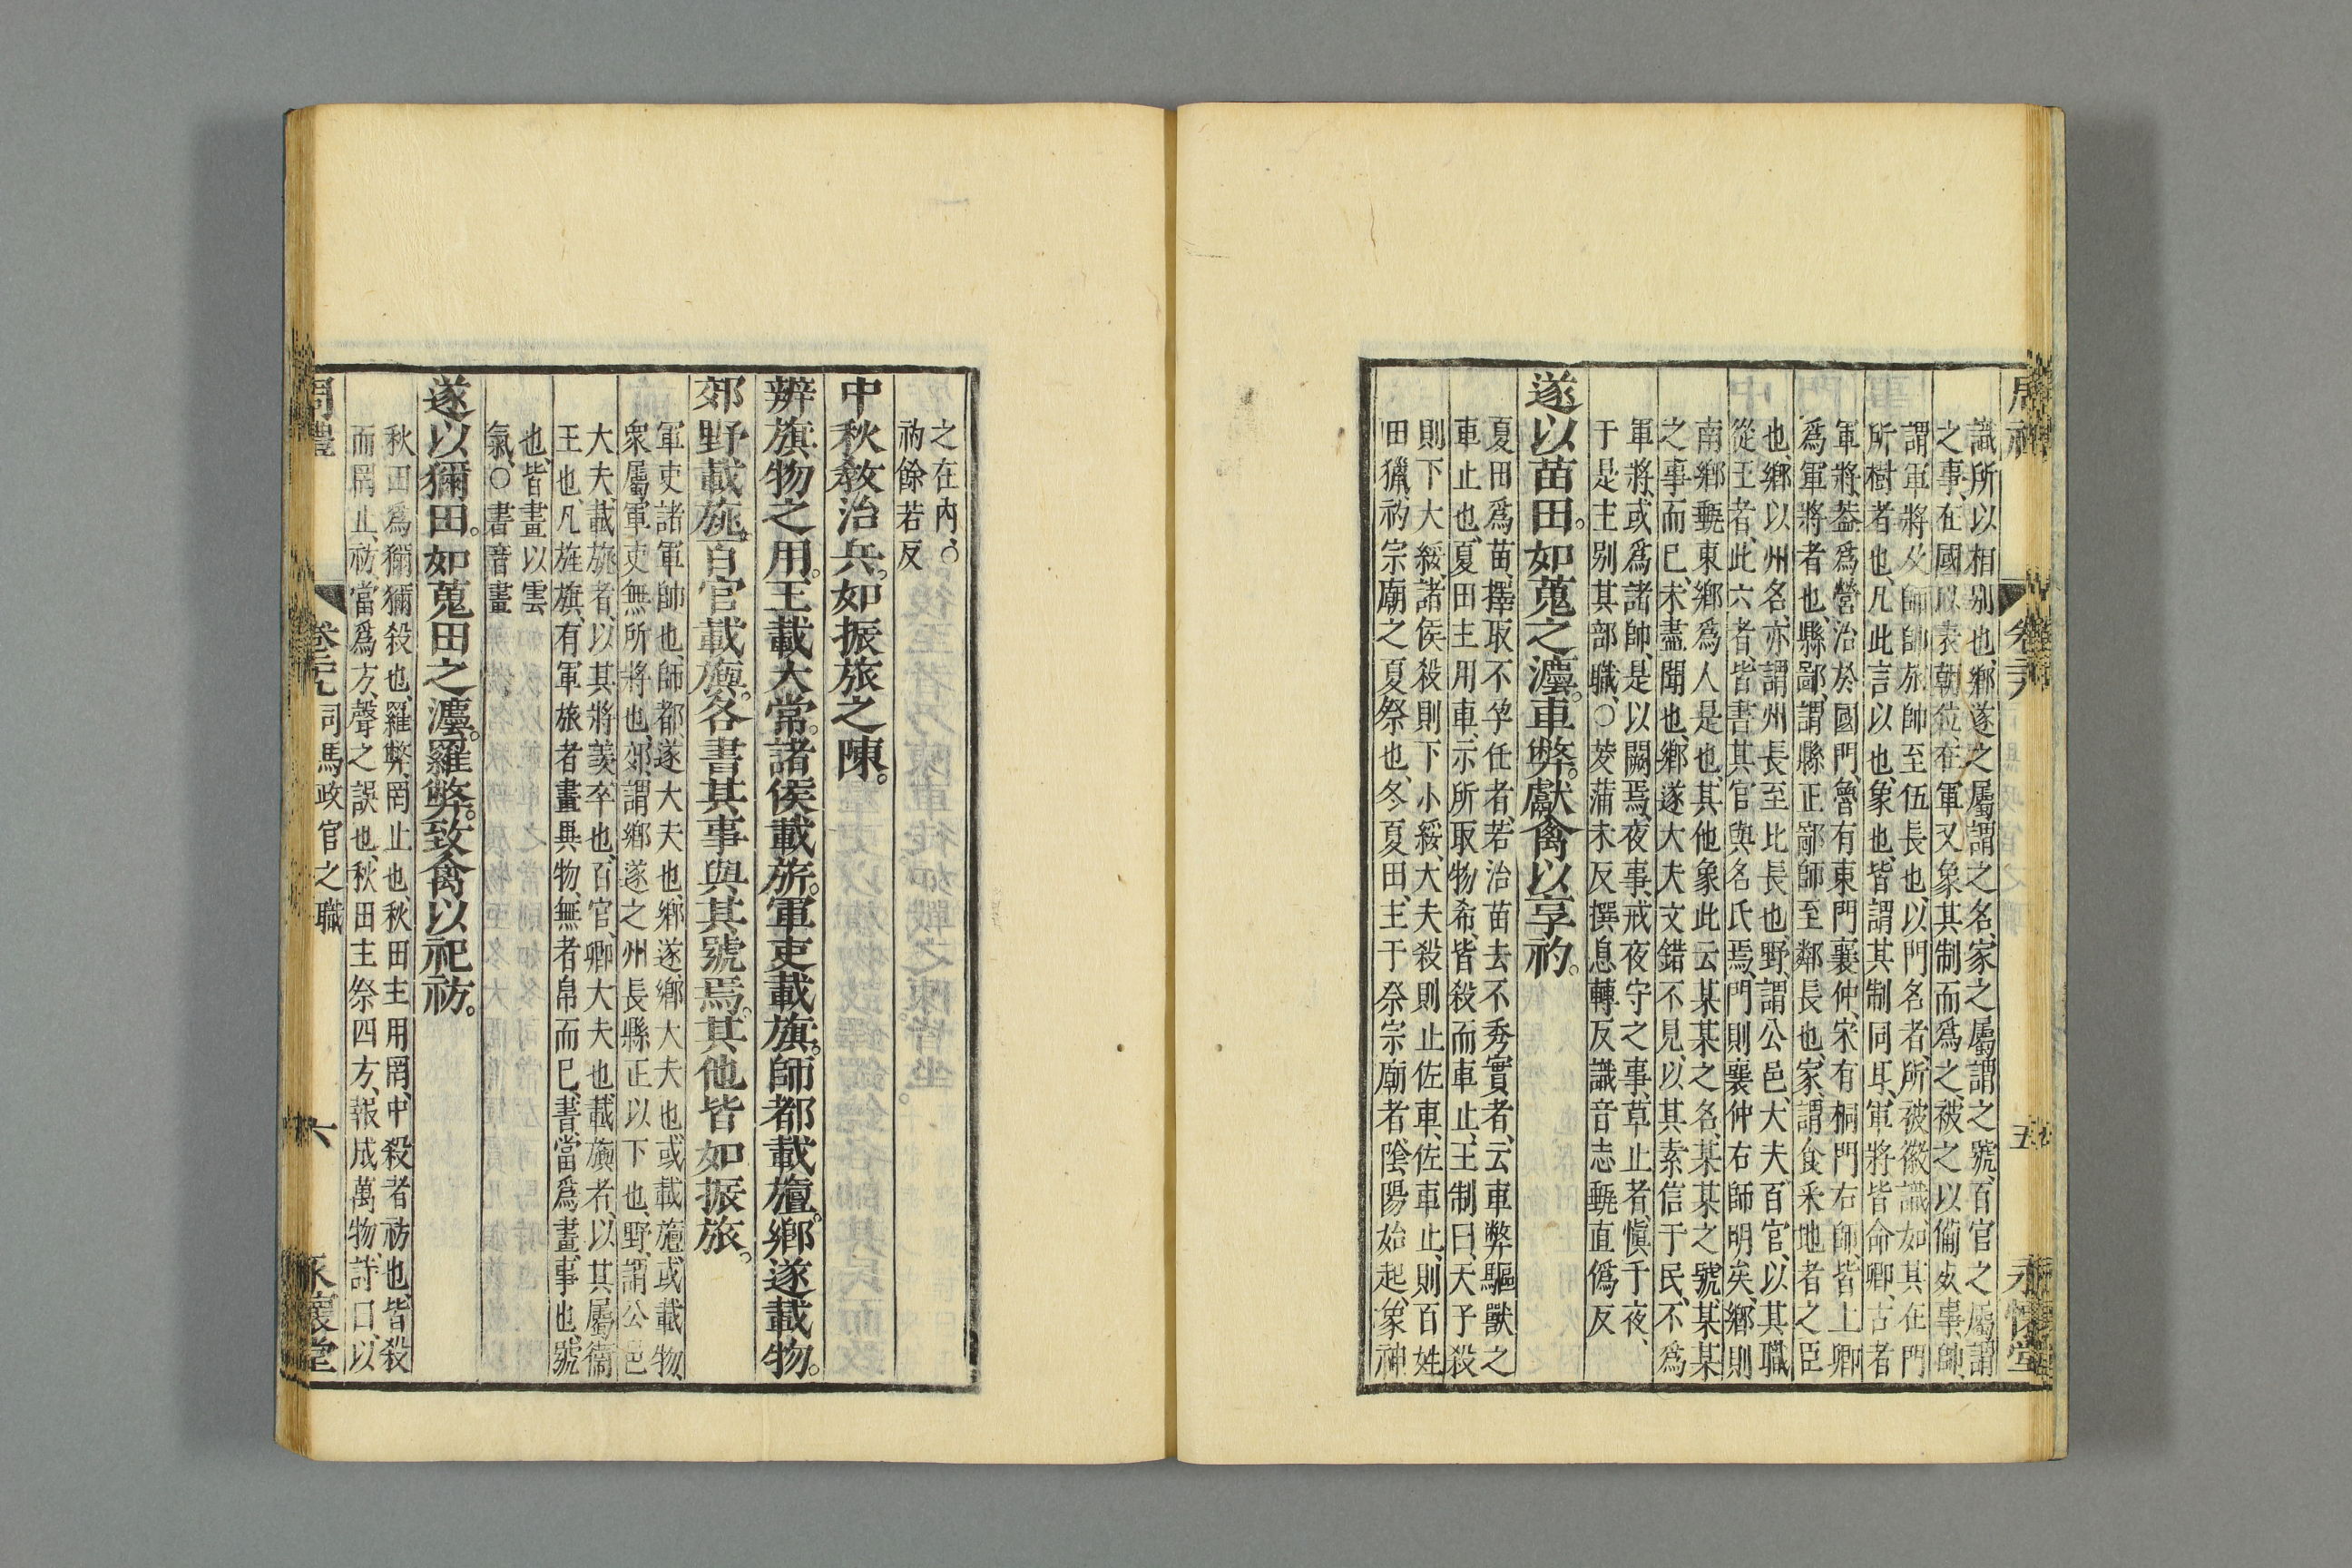 識所以相别也、鄉遂之屬謂之名、家之屬謂之號、百官之屬謂
之事、在國以表朝位、在軍又象其制而爲之、被之以備死事、帥、
謂軍將及師帥旅帥至伍長也、以門名者、所被徽識如其在門
所樹者也、凡此言以也、象也、皆謂其制同耳、軍將皆命卿、古者
軍將、葢爲營治於國門、魯有東門襄仲、宋有桐門右師、皆上卿
爲軍將者也、縣鄙、謂縣正鄙師至鄰長也、家、謂食采地者之臣
也、鄉以州名、亦謂州長至比長也、野、謂公邑、大夫、百官、以其職
從王者、此六者、皆書其官與名氏焉、門則襄仲右師明矣、鄉則
南鄉甀東鄉爲人是也、其他象此云某某之名、某某之號、某某
之事而已、未盡聞也、鄉遂大夫文錯不見、以其素信于民、不爲
軍將、或爲諸帥、是以闕焉、夜事、戒夜守之事、草止者、愼于夜、
于是主别其部職、○茇蒲未反撰息轉反識音志甀直僞反
遂以苗田。如蒐之灋。車弊。獻禽以享礿。
夏田爲苗、擇取不孕任者、若治苗去不秀實者、云車弊驅獸之
車止也、夏田主用車、示所取物希、皆殺而車止、王制曰、天子殺
則下大綏、諸侯殺則下小綏、大夫殺則止佐車、佐車止、則百姓
田獵、礿宗廟之夏祭也、冬夏田、主于祭宗廟者、陰陽始起、象神
周禮
卷二十九
五
永懷堂
之在内、○
礿餘若反
中秋敎治兵。如振旅之陳。
辨旗物之用。王載大常。諸侯載旂。軍吏載旗。師都載旜。鄉遂載物。
郊野載旐。百官載旟。各書其事與其號焉。其他皆如振旅。
軍吏諸軍帥也、師都、遂大夫也、鄉遂、鄉大夫也、或載旜、或載物、
衆屬軍吏、無所將也、郊、謂鄉遂之州長縣正以下也、野、謂公邑
大夫、載旐者、以其將羨卒也、百官、卿大夫也、載旟者、以其屬衞
王也、凡旌旗、有軍旅者畫異物、無者帛而已、書、當爲畫、事也、號
也、皆畫以雲
氣、○書音畫
遂以獮田。如蒐田之灋。羅弊。致禽以祀祊。
秋田爲獮、獮殺也、羅弊、罔止也、秋田主用罔、中殺者祊也、皆殺
而罔止、祊當爲方、聲之誤也、秋田主祭四方、報成萬物、詩曰、以
周禮
卷二十九 司馬政官之職
六
永懷堂